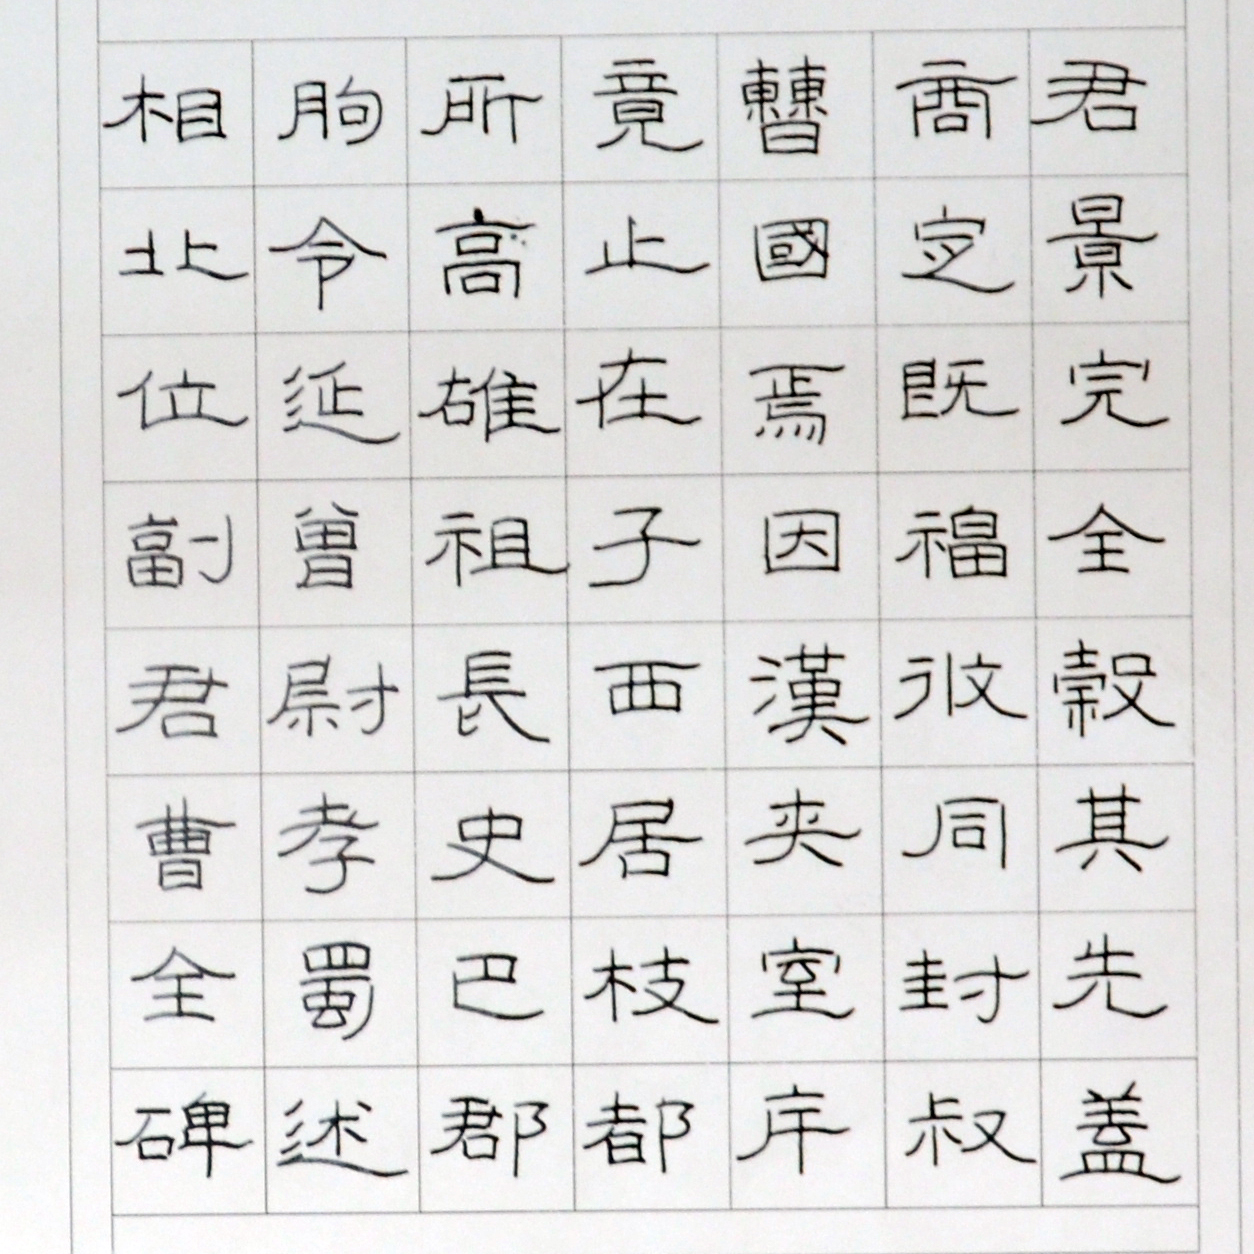 君景完全穀其先蓋
商定既福攸同封叔
𣍘國焉因漢夾室斥
竟止在子西居枝都
所高雄祖長史巴郡
朐令延曾尉孝蜀述
相北位副君曹全碑